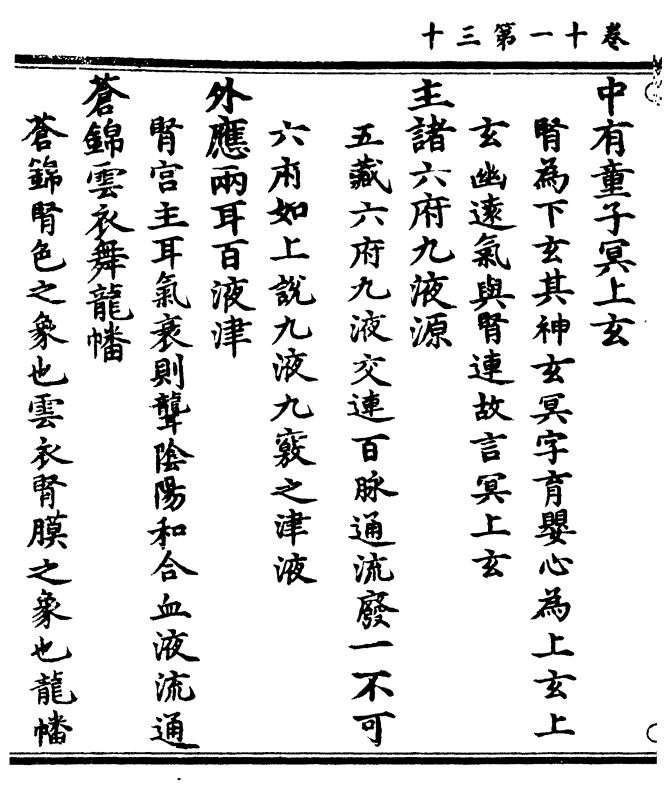 卷十一第三十
中有童子冥上玄
腎為下玄其神玄冥字育嬰心為上玄上
玄幽遠氣與腎連故言冥上玄
主諸六府九液源
五藏六府九液交連百脉通流廢一不可
六府如上說九液九竅之津液
外應兩耳百液津
腎宮主耳氣衰則聾陰陽和合血液流通
蒼錦雲衣舞龍幡
蒼錦腎色之象也雲衣腎膜之象也龍幡